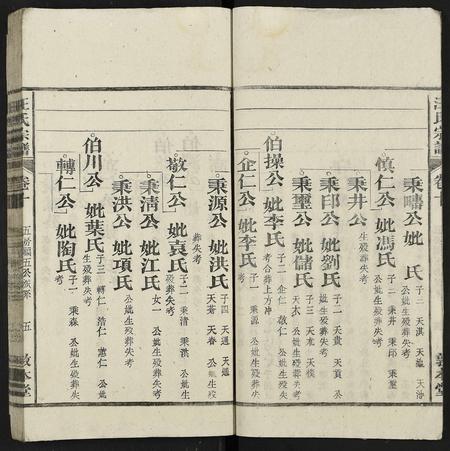 汪氏宗譜
卷十
敦本堂
秉疇公妣 氏 子三 天淇 天 天治
公妣生殁葬失考
慎仁公 妣馮氏 子三 秉井 秉印 秉璽
公妣生殁葬失考
秉井公 生殁葬失考
秉印公 妣劉氏 子二 天貴 天貢 公
妣生殁葬失考
秉璽公 妣儲氏 子三 天 天
天 公妣生殁葬失考
伯操公 妣李氏 子二 企仁 敬仁 公妣生殁失
考合葬上方冲
企仁公 妣李氏 子一 秉源 公妣生殁葬失
考
秉源公 妣洪氏 子四 天 天
天 天春 公妣生殁
葬失考
敬仁公 妣袁氏 子二 秉清 秉洪 公妣
生殁葬失考
秉清公 妣江氏 女一 公妣生殁葬失考
秉洪公 妣項氏 公妣生殁葬失考
伯川公 妣葉氏 子三 轉仁 浩仁 惠仁 公妣
生殁葬失考
轉仁公 妣陶氏 子一 秉森 公妣生殁葬失
考
汪氏宗譜
卷十
五
敦本堂